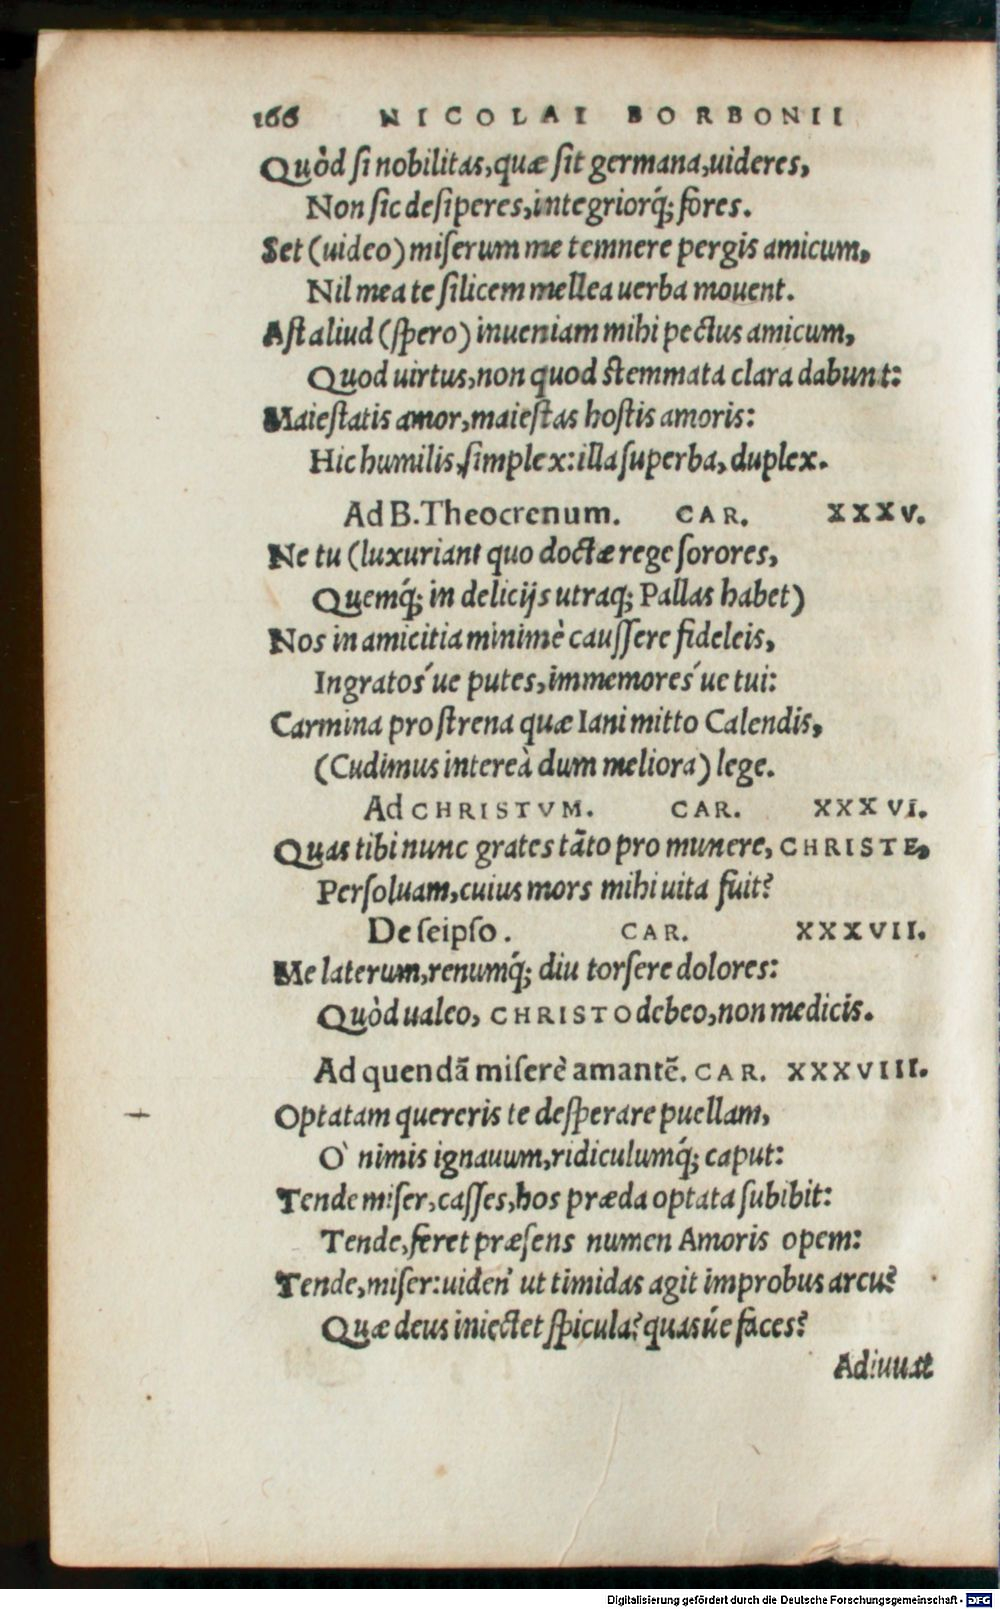 166 NICOLAI BORBONII
Quòd ſi nobilitas, quæ ſit germana, uideres,
Non ſic deſiperes, integriorq́; fores.
Set (uideo) miſerum me temnere pergis amicum,
Nil mea te ſilicem mellea uerba mouent.
Aſt aliud (ſpero) inueniam mihi pectus amicum,
Quod uirtus, non quod ſtemmata clara dabunt:
Maieſtatis amor, maieſtas hoſtis amoris:
Hic humilis, ſimplex: illa ſuperba, duplex.
Ad B. Theocrenum. CAR. XXXV.
Ne tu (luxuriant quo doctæ rege ſorores,
Quemq́; in delicijs utraq; Pallas habet)
Nos in amicitia minimè cauſſere fideleis,
Ingratos´ue putes, immemores´ue tui:
Carmina pro ſtrena quæ Iani mitto Calendis,
(Cudimus intereà dum meliora) lege.
Ad CHRISTVM. CAR. XXXVI.
Quas tibi nunc grates tãto pro munere, CHRISTE,
Perſoluam, cuius mors mihi uita fuit?
De ſeipſo. CAR. XXXVII.
Me laterum, renumq́; diu torſere dolores:
Quòd ualeo, CHRISTO debeo, non medicis.
Ad quendã miſerè amantẽ. CAR. XXXVIII.
Optatam quereris te deſperare puellam,
O` nimis ignauum, ridiculumq́; caput:
Tende miſer, caſſes, hos præda optata ſubibit:
Tende, feret præſens numen Amoris opem:
Tende, miſer: uiden' ut timidas agit improbus arcu?
Quæ deus iniectet ſpicula? quasúe faces?
Adiuuat
Digitalisierung gefördert durch die Deutsche Forschungsgemeinschaft - DFG